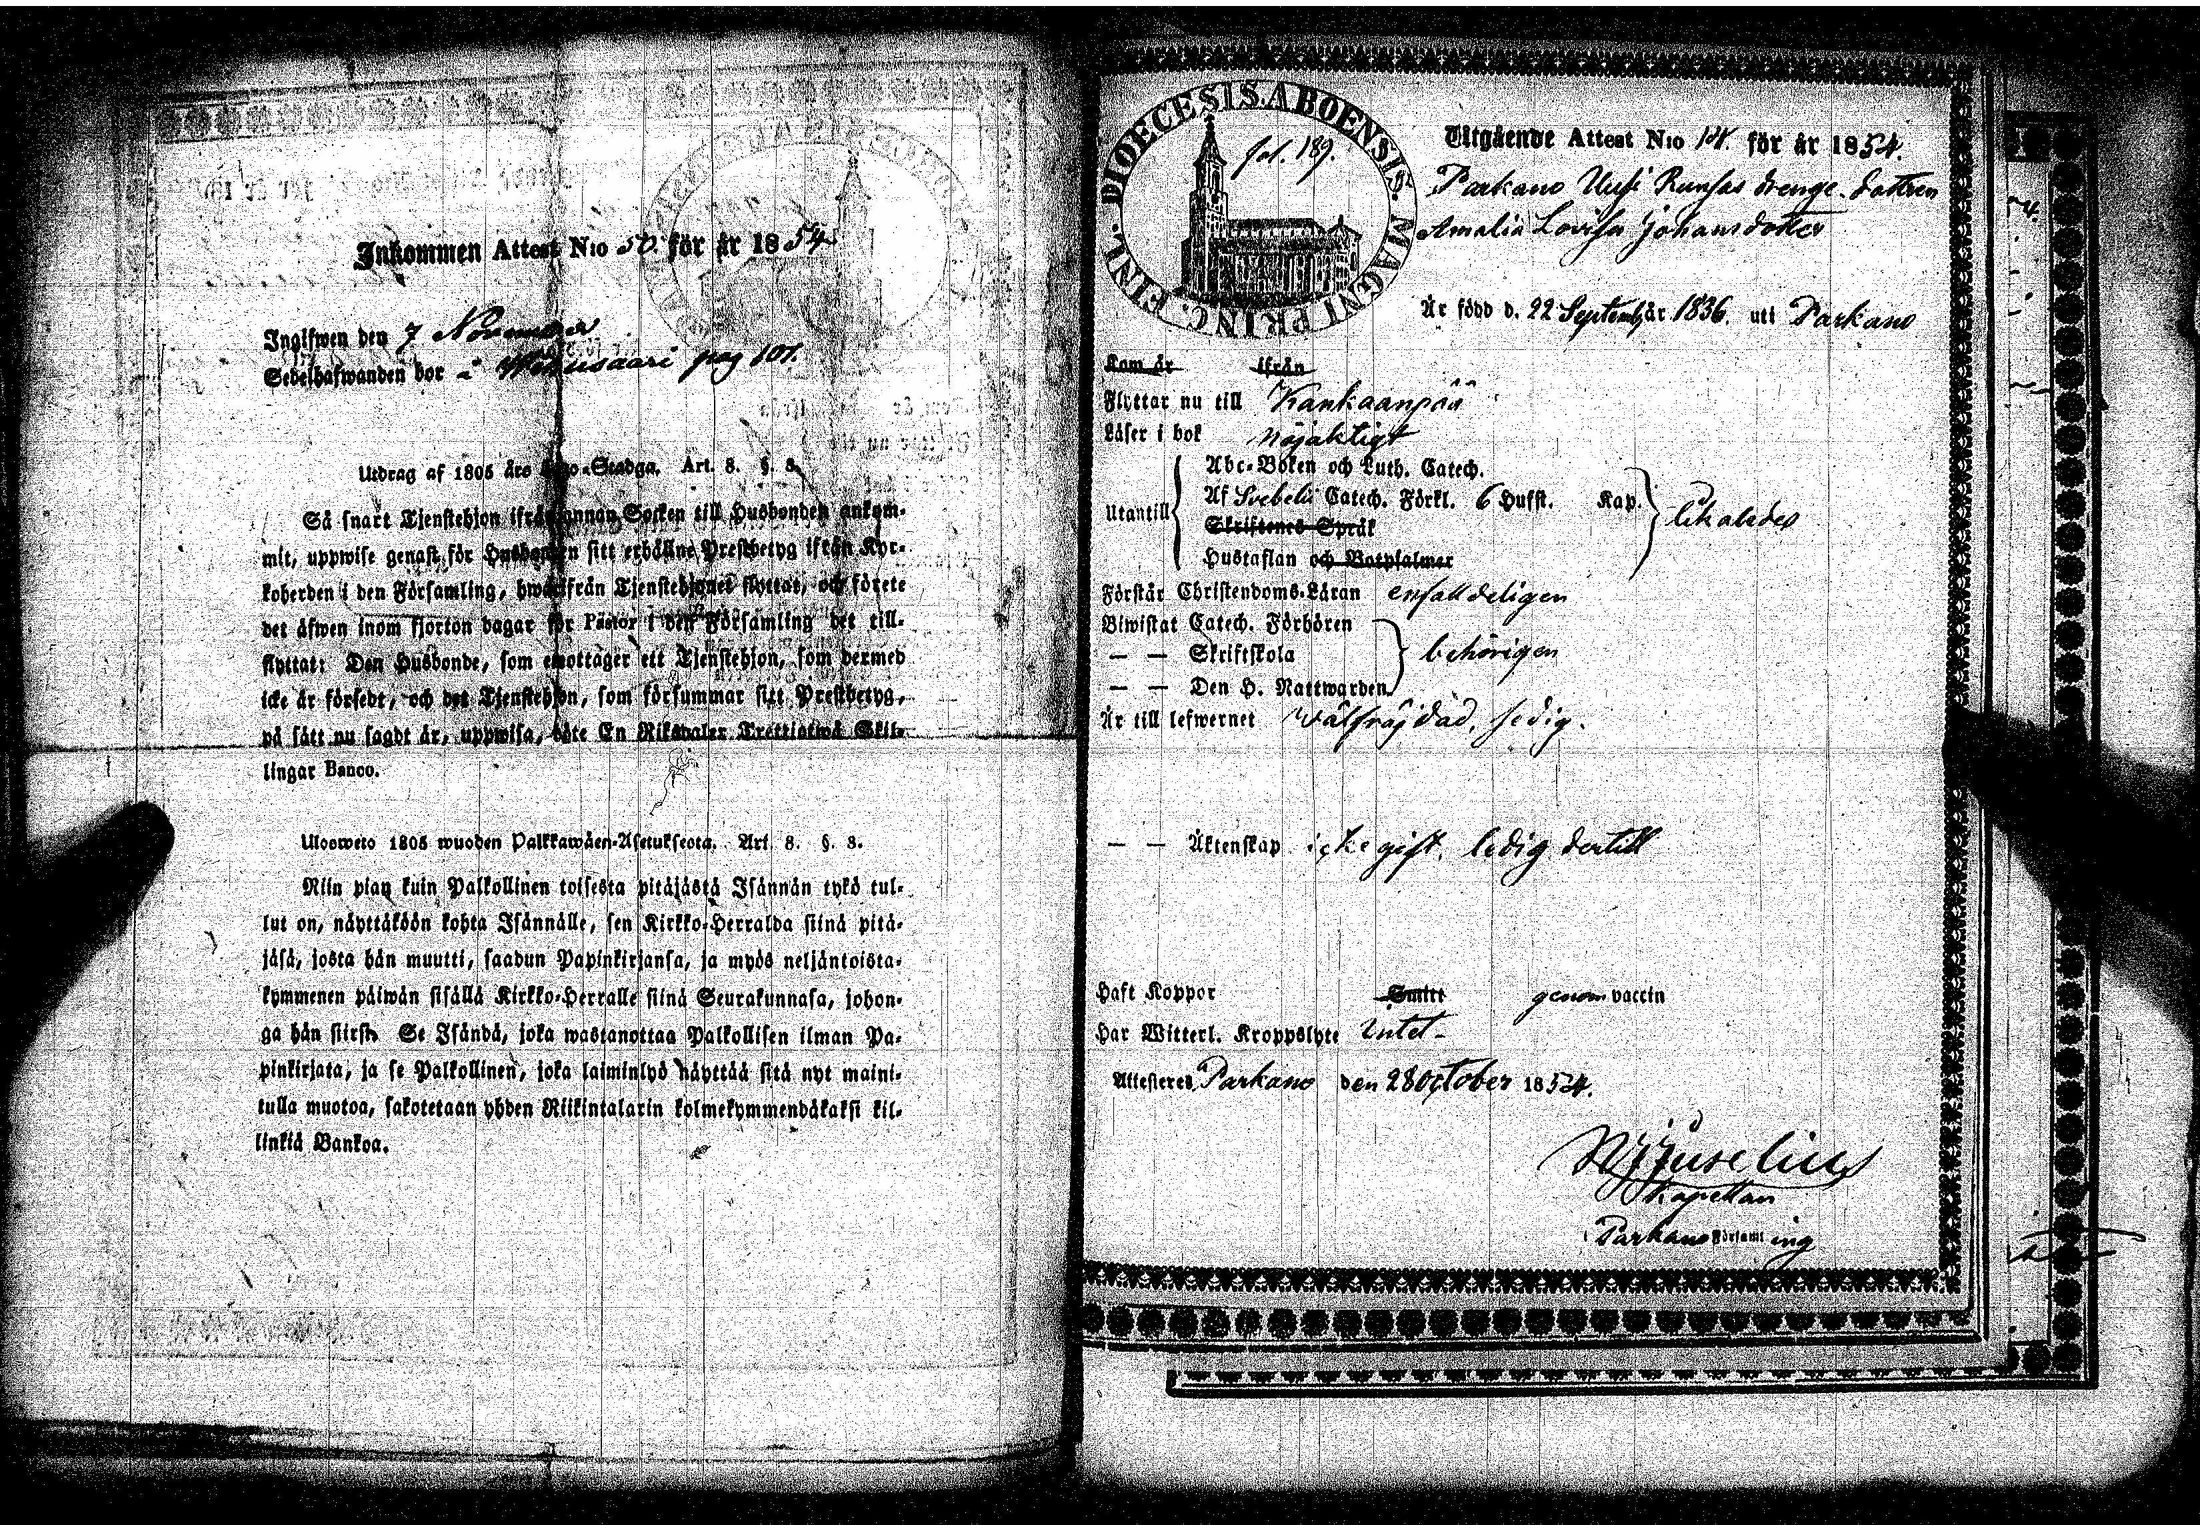 Inkommen Attest N:o 50. för år 1854
Ingifwen den 7 November
Sedelhafwanden bor i pag 107.
Utdrag af 1805 års Lego-Stadga. Art. 8. §. 8.
Så snart Tjenstehjon ifrån annan Socken till Husbonden ankom-
mit, uppwise genast för Husbonden sitt erhållne Prestbetyg ifrån Kyr-
koherden i den Församling, hwarifrån Tjenstehjonet flyttat, och förete
det äfwen inom fjorton dagar för Pastor i den Församling det till-
flyttat: Den Husbonde, som emottager ett Tjenstehjon, som dermed
icke är försedt, och det Tjenstehjon, som försummar sitt Prestbetyg,
på sätt nu sagdt är, uppwisa, böte En Riksdaler Trettiotwå Skil-
lingar Banco.
Uloosweto 1805 wuoden Palkkawäen-Asetuksesta. Art. 8. §. 8.
Niin pian kuin Palkollinen toisesta pitäjästä Isännän tykö tul-
lut on, näyttäköön kohta Isännälle, sen Kirkko-Herralda siinä pitä-
jäsä, josta hän muutti, saadun Papinkirjansa, ja myös neljäntoista-
kymmenen päiwän sisällä Kirkko-Herralle siinä Seurakunnasa, johon-
ga hän siirsi. Se Isändä, joka wastanottaa Palkollisen ilman Pa-
pinkirjata, ja se Palkollinen, joka laiminlyö näyttää sitä nyt maini-
tulla muotoa, sakotetaan yhden Riikintalarin kolmekymmendäkaksi kil-
linkiä Bankoa.
DIOECESIS. ABOENSIS. MAGNI PRINC. FINL.
fol. 189.
Utgående Attest N:o 14. för år 1854.
Parkano Uusi Runsas drenge-dottren
Amalia Lovisa Johansdotter
Är född d. 22 Septemb. år 1836. uti Parkano
Kom år ifrån
Flyttar nu till Kankaanpää
Läser i bok nöjaktigt
Utantill
Abc-Boken och Luth. Catech.
Af Svebelii Catech. Förkl. 6 Hufst. Kap.
Skriftenes Språk
Hustaflan och Botpsalmer
likaledes
Förstår Christendoms-Läran enfalldeligen
Biwistat Catech. Förhören
— — Skriftskola
— — Den H. Nattwarden
behörigen
Är till lefwernet välfräjdad, sedig.
— — Äktenskap icke gift, ledig dertill
Haft Koppor Smitt genom vaccin
Har Witterl. Kroppslyte intet-
Attesteres, Parkano den 28 October 1854.
Juselius
Kapellan
i Parkano Församling